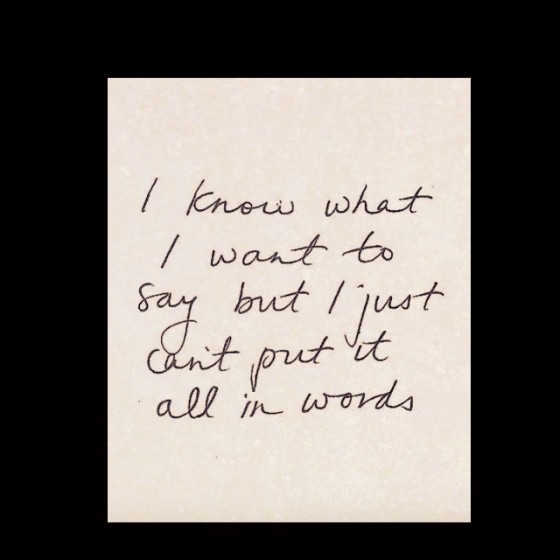 I know what
I want to
say but I just
can't put it
all in words